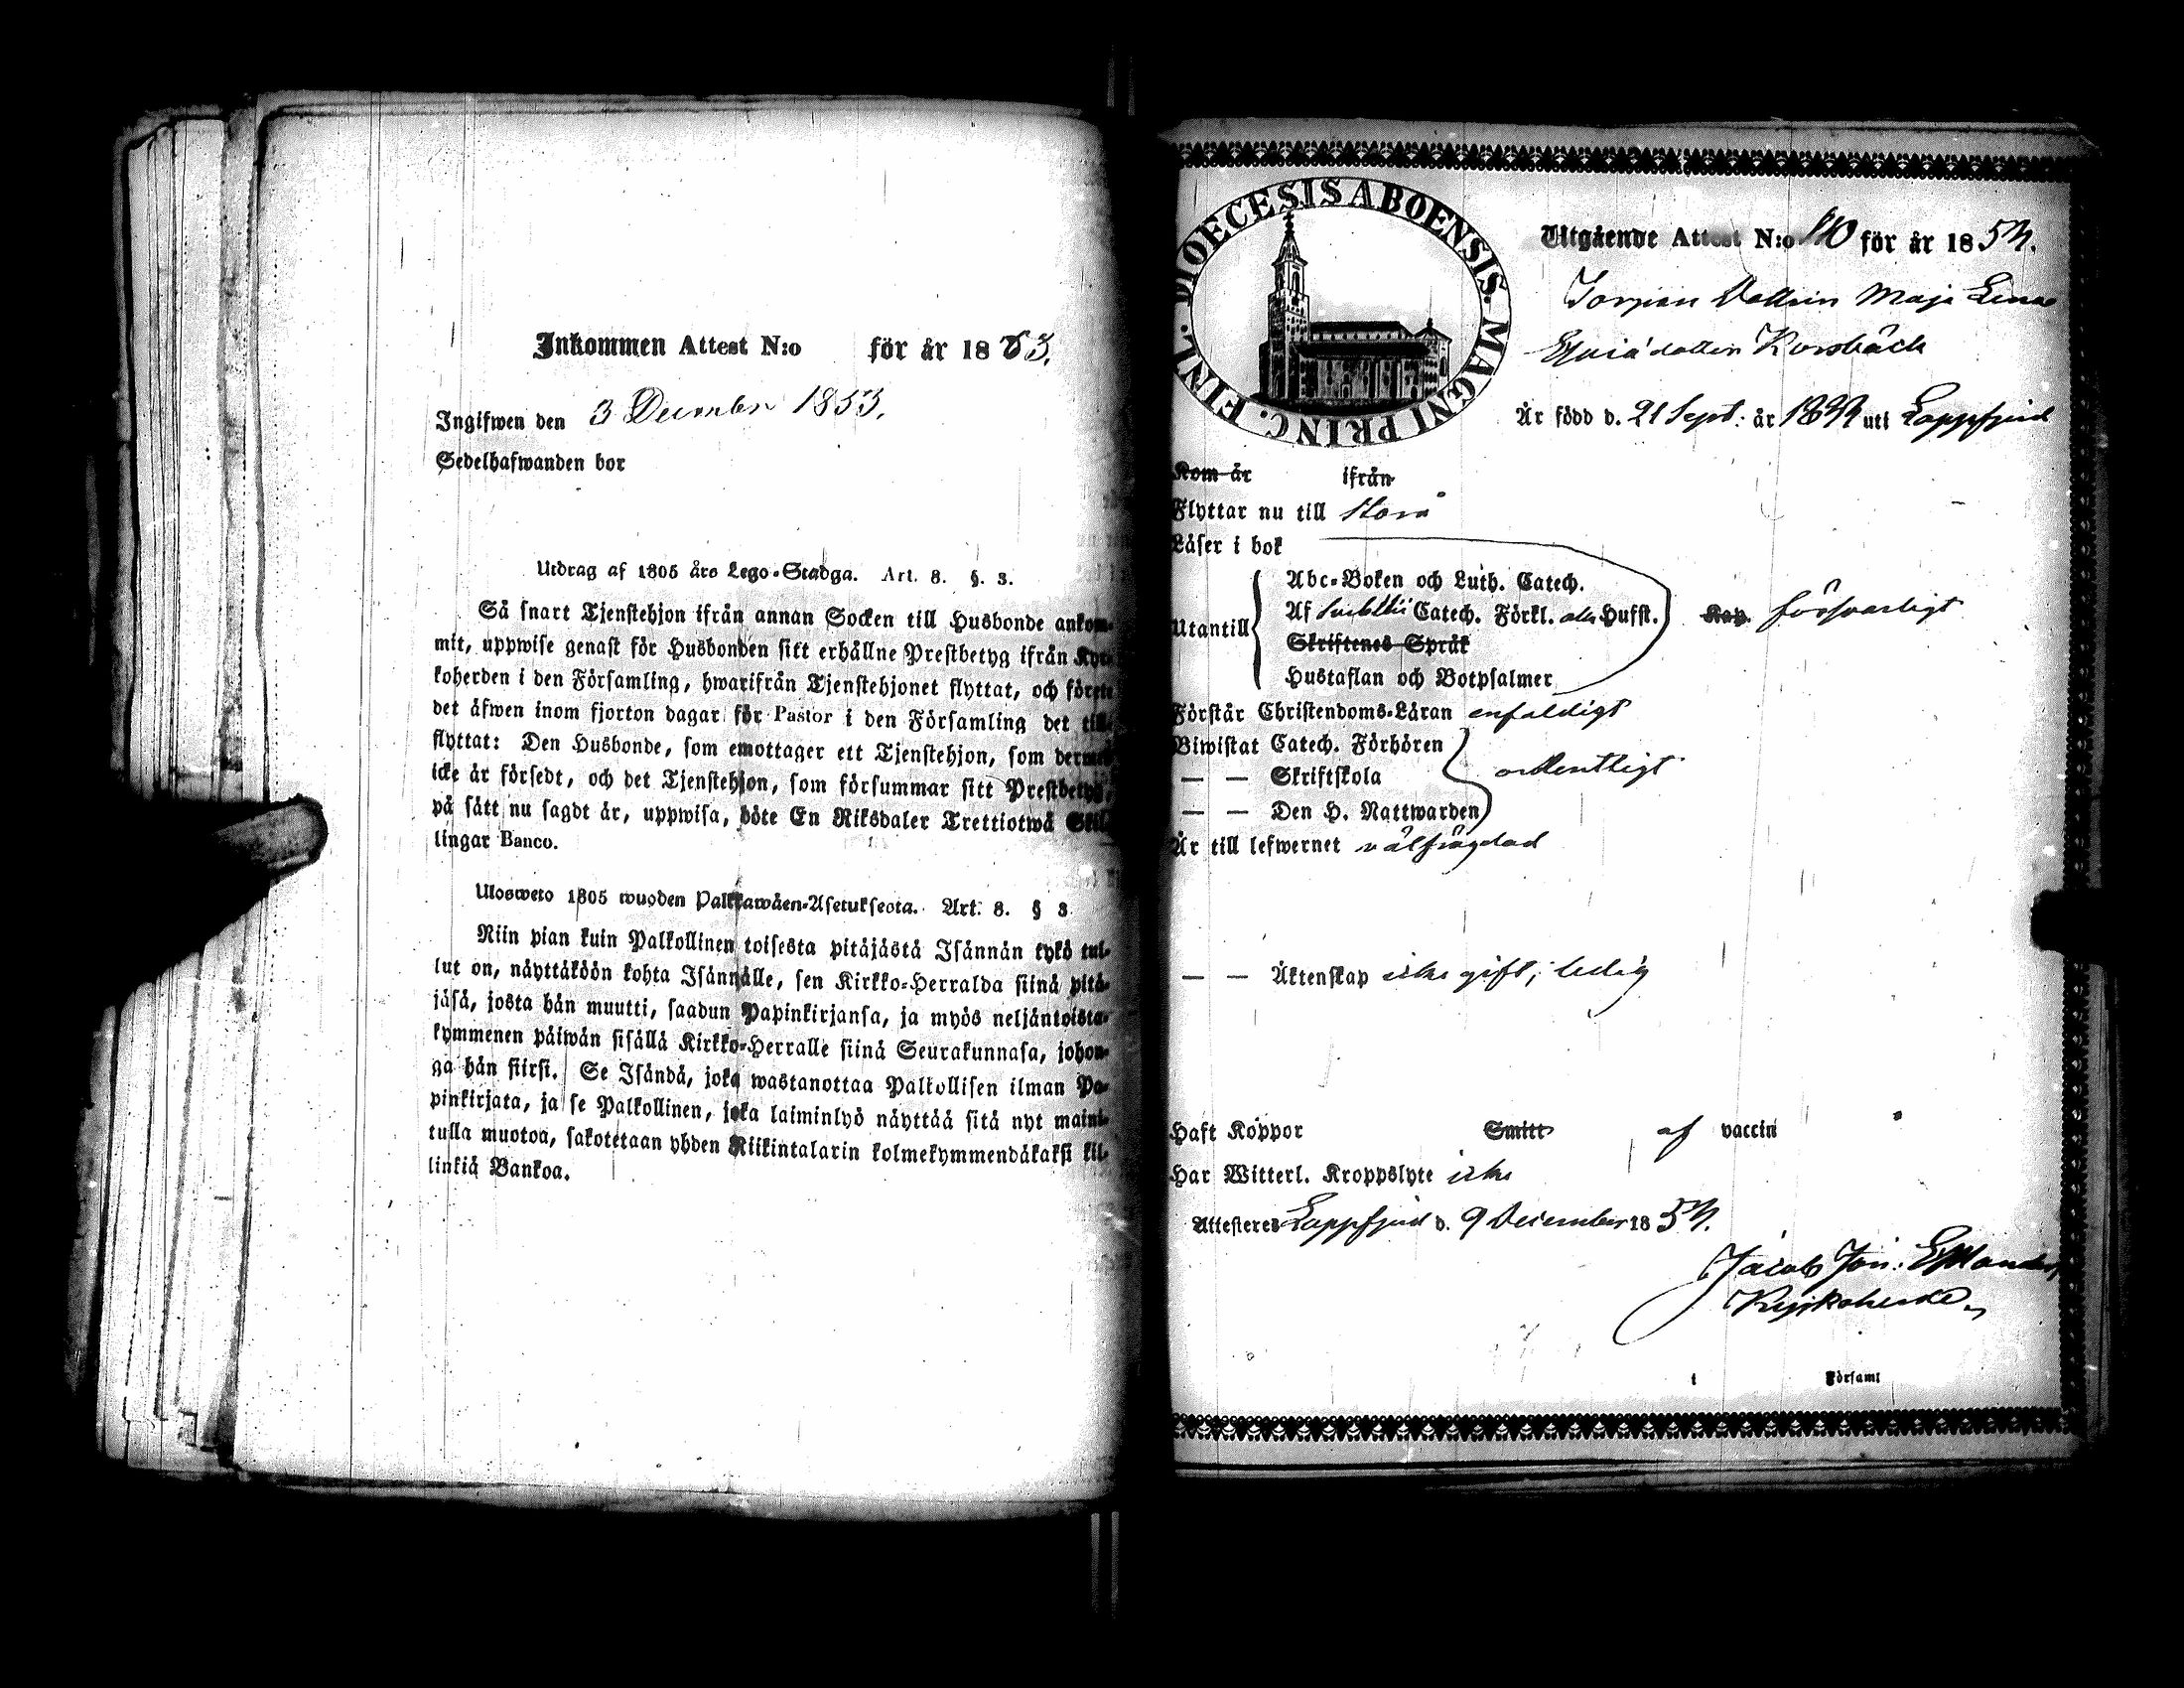 Inkommen Attest N:o för år 1853.
Ingifwen den 3 December 1853.
Sedelhafwanden bor
Utdrag af 1805 års Lego-Stadga. Art. 8. §. 3.
Så snart Tjenstehjon ifrån annan Socken till Husbonde ankom-
mit, uppwise genast för Husbonden sitt erhållne Prestbetyg ifrån Kyr-
koherden i den Församling, hwarifrån Tjenstehjonet flyttat, och förete
det äfwen inom fjorton dagar för Pastor i den Församling det till-
flyttat: Den Husbonde, som emottager ett Tjenstehjon, som dermed
icke är försedt, och det Tjenstehjon, som försummar sitt Prestbetyg,
på sätt nu sagdt är, uppwisa, böte En Riksdaler Trettiotwå Skil-
lingar Banco.
Ulosweto 1805 wuoden Palkkawäen-Asetuksesta. Art. 8. § 3
Niin pian kuin Palkollinen toisesta pitäjästä Isännän tykö tul-
lut on, näyttäköön kohta Isännälle, sen Kirkko-Herralda siinä pitä-
jäsä, josta hän muutti, saadun Papinkirjansa, ja myös neljäntoista-
kymmenen päiwän sisällä Kirkko-Herralle siinä Seurakunnasa, johon-
ga hän siirsi. Se Isändä, joka wastanottaa Palkollisen ilman Pa-
pinkirjata, ja se Palkollinen, joka laiminlyö näyttää sitä nyt maini-
tulla muotoa, sakotetaan yhden Riikintalarin kolmekymmendäkaksi kil-
linkiä Bankoa.
DIOECESIS ABOENSIS. MAGNI PRINC. FINL.
Utgående Attest N:o 110 för år 1853.
Maja Lena
Korsbäck
Är född d. 21 Sept: år uti Lappfjerd
Kom år ifrån
Flyttar nu till Storå
Läser i bok
Utantill
Abc-Boken och Luth. Catech.
Af Svebilii Catech. Förkl. Hufst. Kap. försvarligt
Skriftenes Språk
Hustaflan och Botpsalmer
Förstår Christendoms-Läran enfaldigt
Biwistat Catech. Förhören
— — Skriftskola ordentligt
— — Den H. Nattwarden
Är till lefwernet välfrägdad
— — Äktenskap icke gift, ledig
Haft Koppor Smitt af vaccin
Har Witterl. Kroppslyte icke
Attesteres Lappfjerd d. 9 December 1853.
Jacob Joh.
Kyrkoherde
i Församl